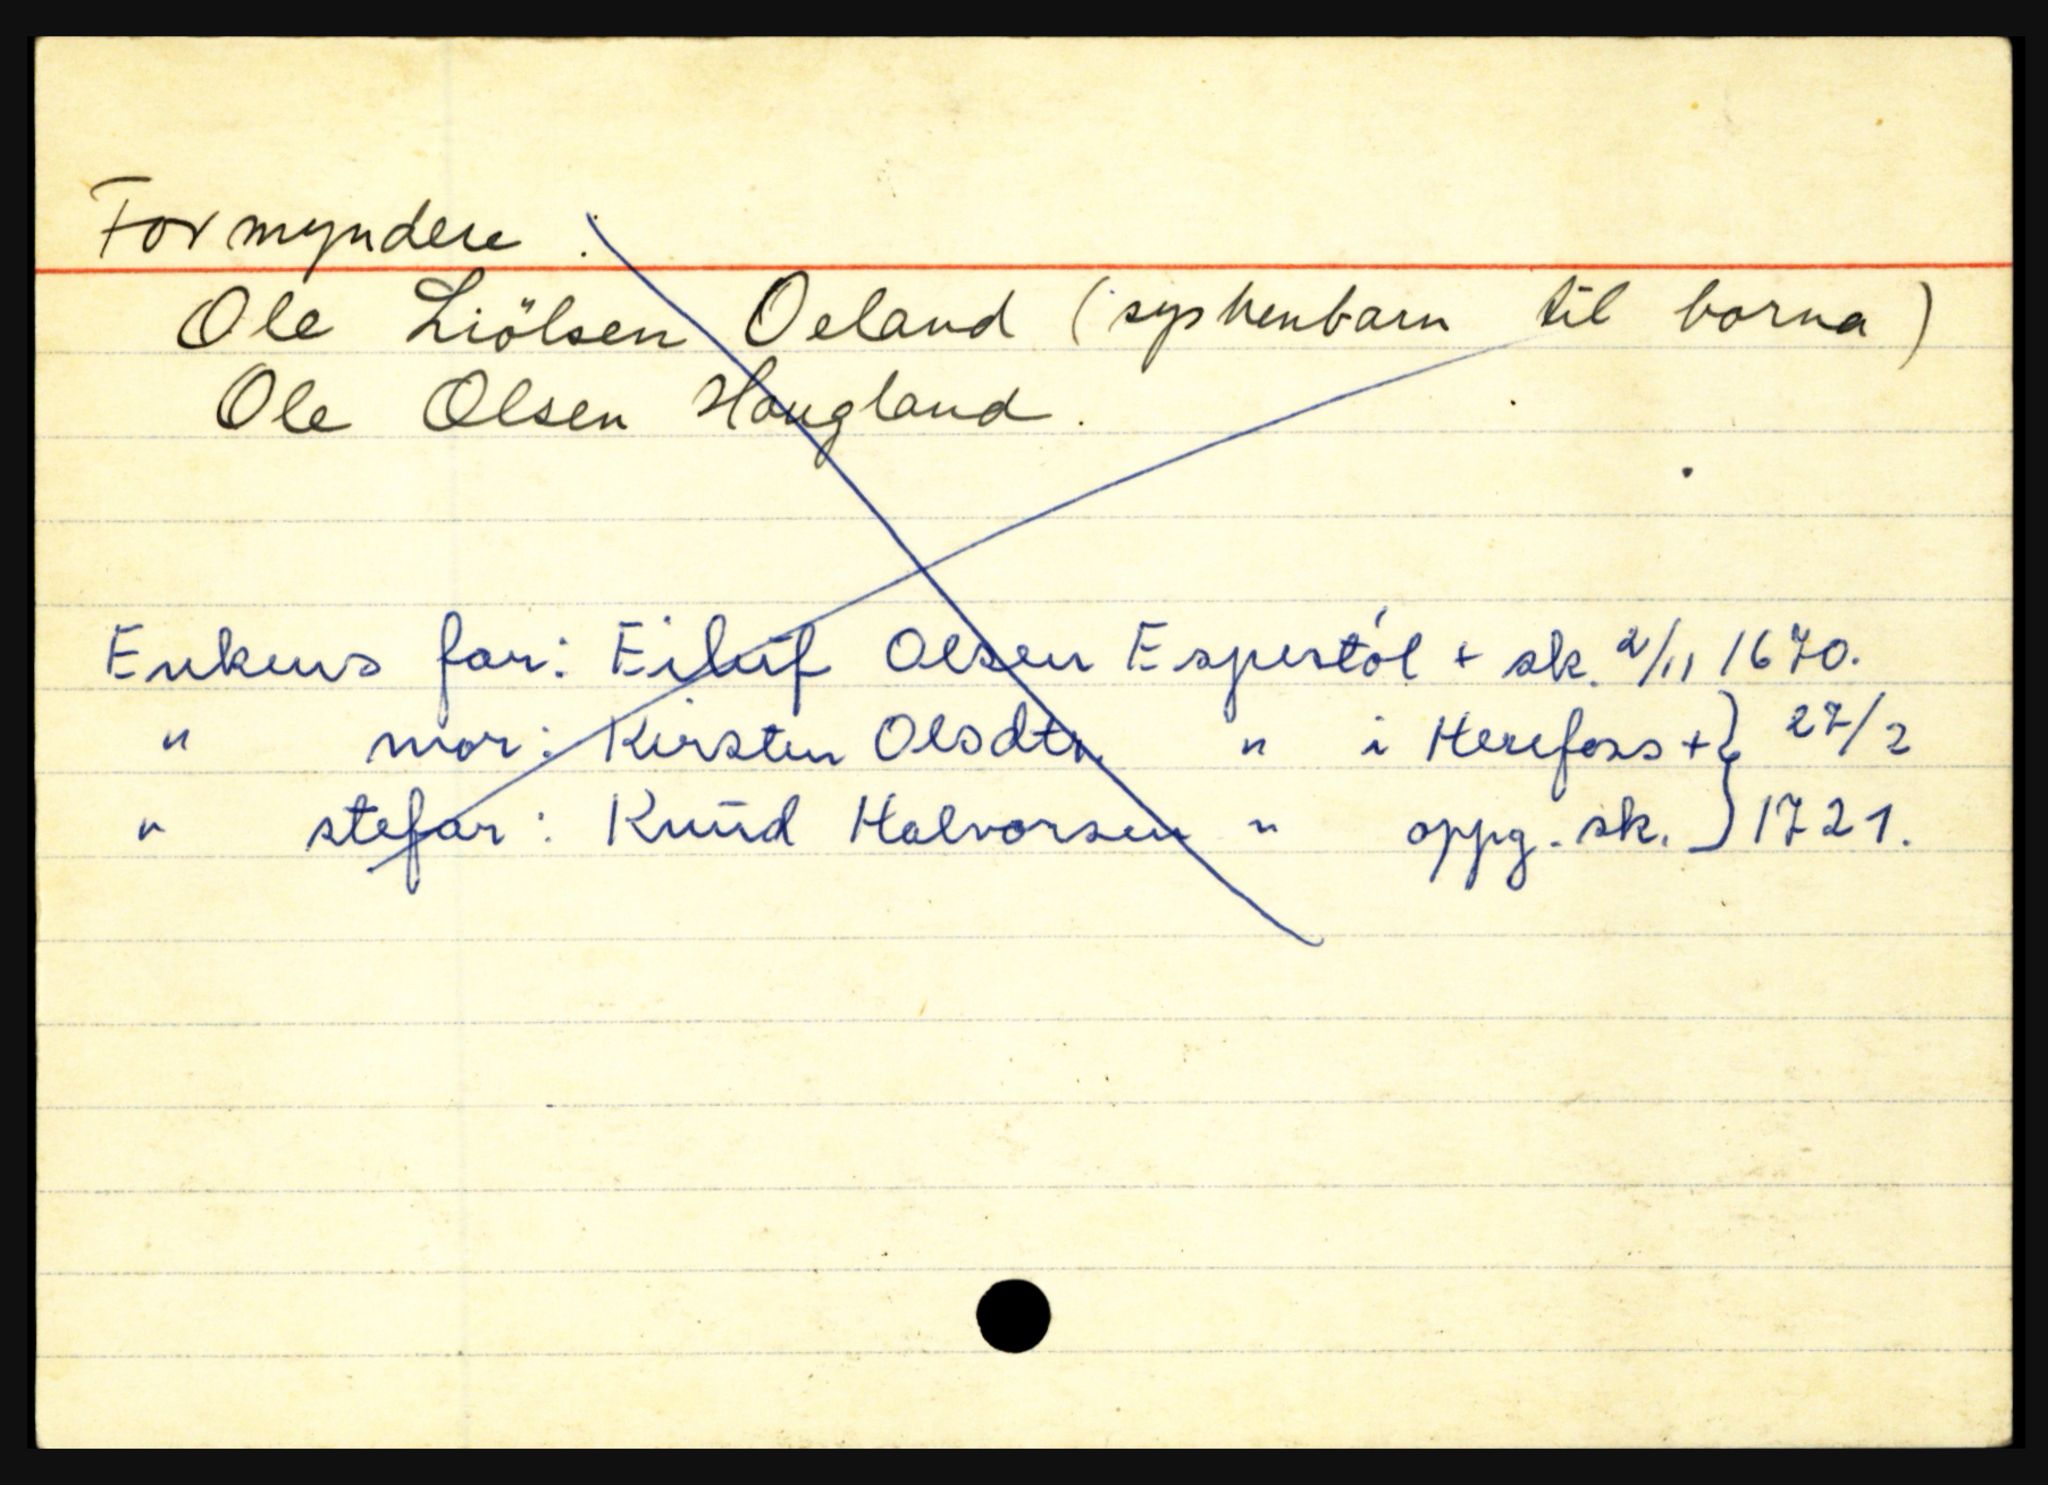 Formyndere .
Ole Liölsen Oeland (syskenbarn til borna)
Ole Olsen Haugland.
Enkens far: Eiluf Olsen Espestøl + sk. 2/11 1670.
" mor: Kirsten Olsdtr. " i Herefoss + } 27/2
" stefar: Knud Halvorsen " oppg. sk. } 1721.